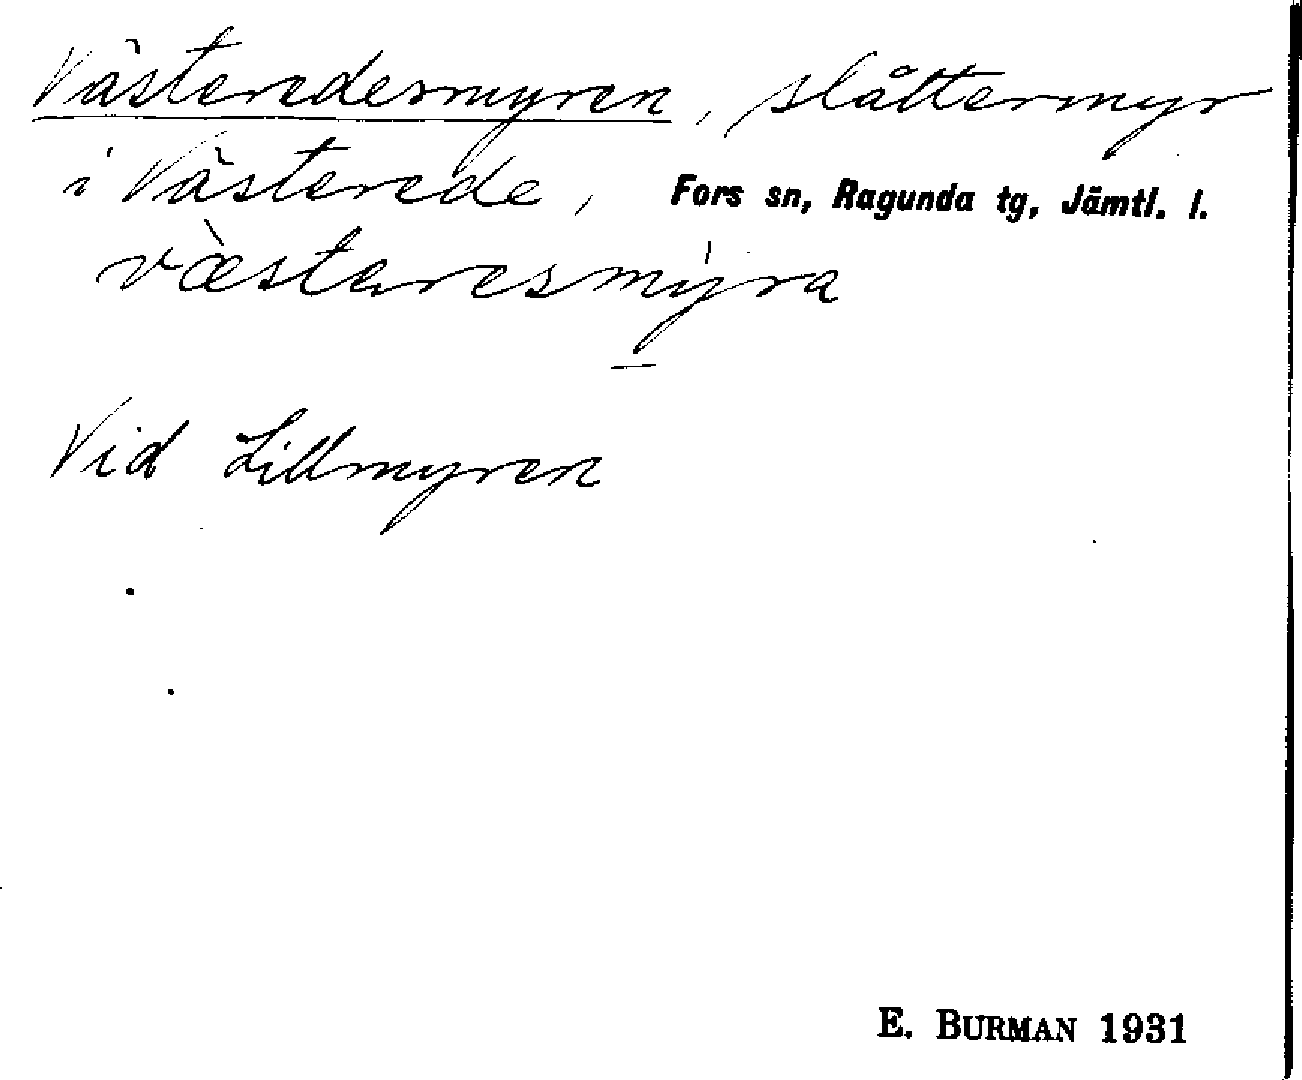 Västeredesmyren, slåttermyr
i Västerede, Fors sn, Ragunda tg, Jämtl. l.
væ̀staresmýra
Vid Lillmyren
E. BURMAN 1931